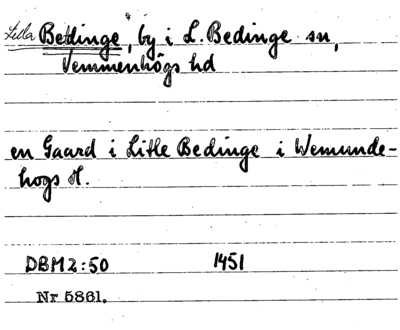 Lilla Beddinge, by i L. Bedinge sn,
Vemmenhögs hd
en Gaard i Litle Bedinge i Wemunde-
hogs H.
DBM2:50 1451
Nr 5861.